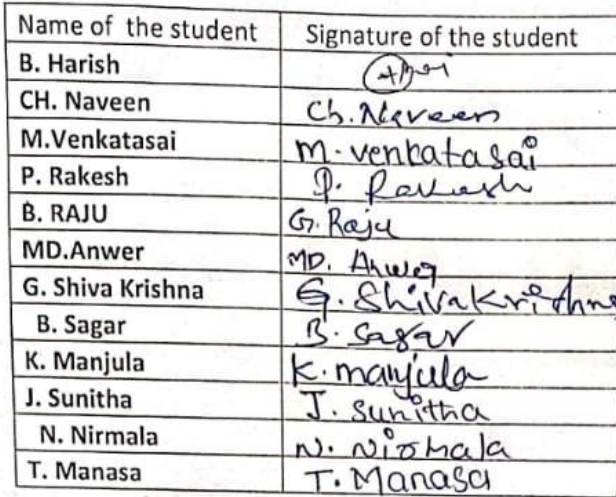 Name of the student Signature of the student
B. Harish
CH. Naveen Ch. Naveen
M.Venkatasai M. venkatasai
P. Rakesh P. Rakesh
B. RAJU G. Raju
MD.Anwer MD. Anwer
G. Shiva Krishna G. Shivakrishna
B. Sagar B. Sagar
K. Manjula K. manjula
J. Sunitha J. Sunitha
N. Nirmala N. Nirmala
T. Manasa T. Manasa